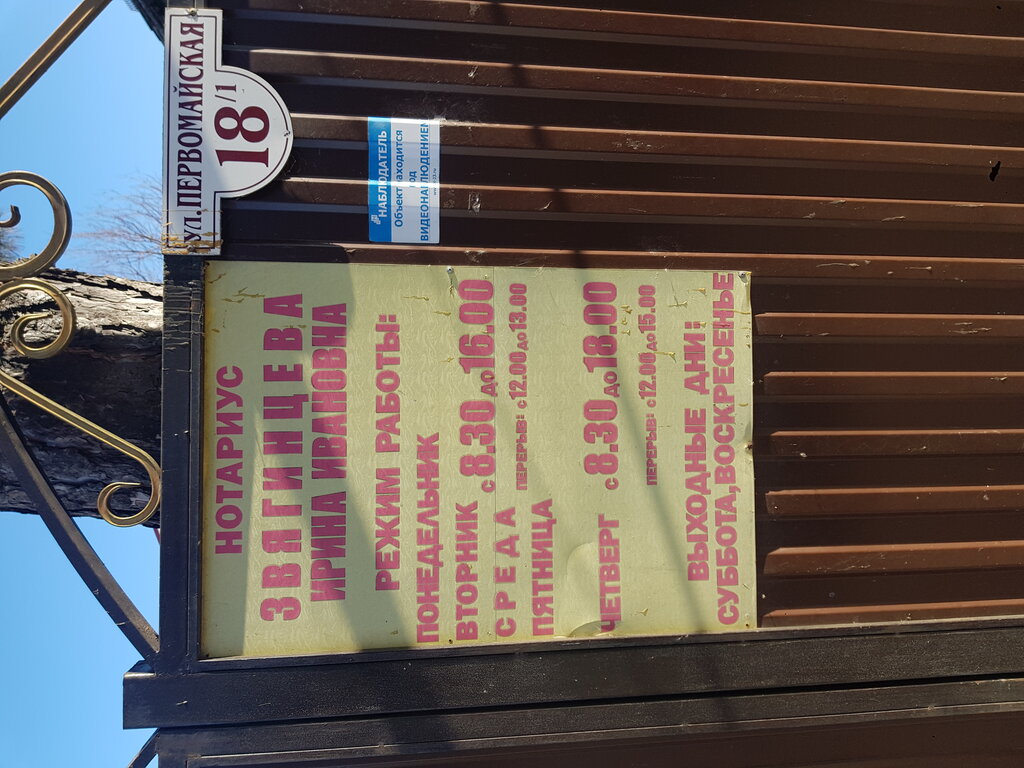 УЛ. ПЕРВОМАЙСКАЯ
18/1
НАБЛЮДАТЕЛЬ
Объект находится
под
ВИДЕОНАБЛЮДЕНИЕМ
НОТАРИУС
ЗВЯГИНЦЕВА
ИРИНА ИВАНОВНА
РЕЖИМ РАБОТЫ:
ПОНЕДЕЛЬНИК
ВТОРНИК с 8.30 до 16.00
СРЕДА ПЕРЕРЫВ: с 12.00 до 13.00
ПЯТНИЦА
ЧЕТВЕРГ с 8.30 до 18.00
ПЕРЕРЫВ: с 12.00 до 15.00
ВЫХОДНЫЕ ДНИ:
СУББОТА,ВОСКРЕСЕНЬЕ